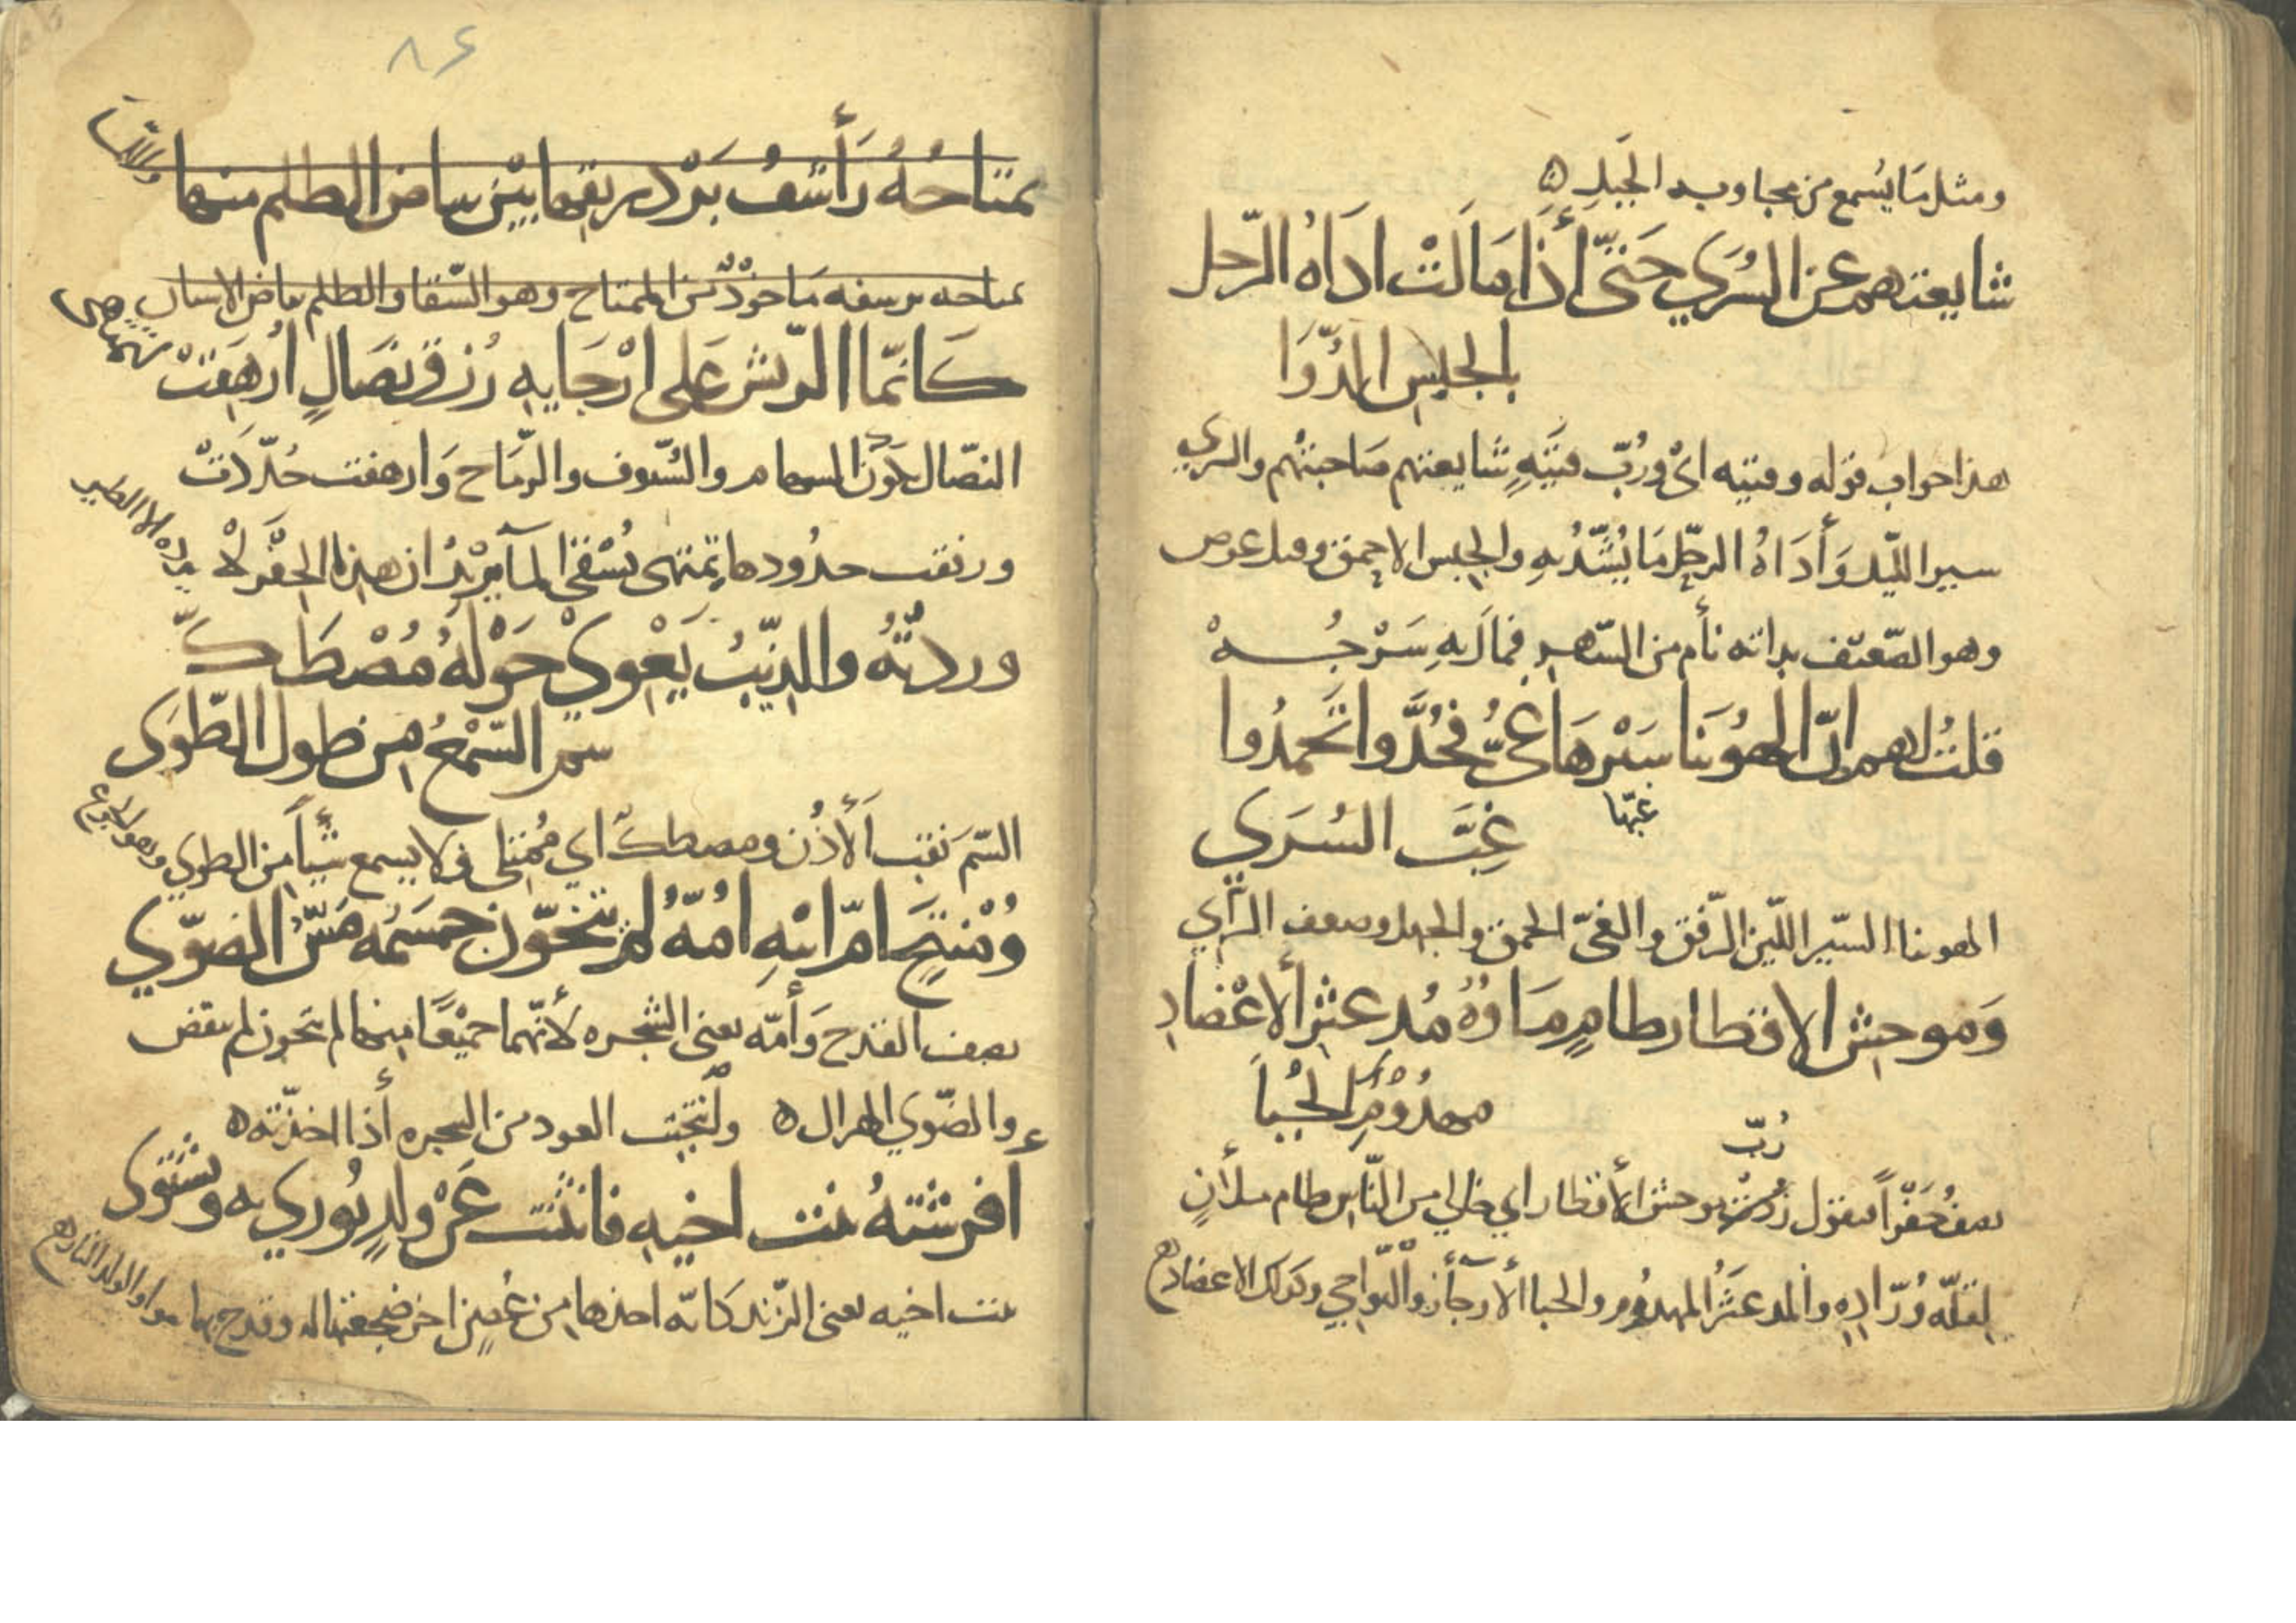 ومثل مَا يُسمع من مجاوبه الجَبَلِ ه
شايعتهم عن السُرَي حَتىّ أَذَا مَالَتْ ادَاهُ الرّحل
بالجبس الدّوَا
هذا جواب قوله وفتيه اىْ ورُبّ فتيَهٍ شايعتهم صَاحبتهم والسري
سير اللّيل وَأَدَاهُ الرحّل مَا يُشَّدُ بهِ والجبس الاحمق وقيل عرض
وهو الضّعيف يراته نأم من السّهر فمال بهِ سَرْجُهْ
قلتُ لهم انّ الهُوَينا سَيْرهَا غىُّ فُجُدَّوا تَحمدُوا
غبّها
غِبَّ السُرَي
الهوينا السّير الليّن الرّفق والغىّ الحمق والجهل وضعف الرأي
وَموحش الاقطار طامٍ مَاوُهُ مُدعثر ألاعْضادِ
مهدُوْمِ الجُباَ
رُبّ
يصفُ حَفْراً فيقول موحش الأقطار اي خالي من النّاس طام ملأنٍ
لقلّه وُرّاده والمدعثَرُ المهدُوم والجبا ألأرجآ أنْ والنّواحي وكذلك الاعضاد ه
٨٤
يمتاحُهُ رَأشفُ بَرْد ريقها بيْن بياض الظلم منها واللّما
يمتاحه يرشفه مَاخوْذٌ من الممتاح وهو السّقا والظلم بياض الاسنان
كَانمّا الرّيش عَلى ارْجَايهِ زُرق نصَالٍ ارُهفتْ لتمُتَهى
النصّال تكوَن السهام والسّيوف والرّمَاح وَارهفت حُدّدَتْ
ورققت حدُودها تمتهى تُسْقىْ المآ يرْيدُ ان هذا الحفْرَ لا يرده الا الطير
وردتهُ والذيّبُ يَعْويْ حَوْلهُ مُصْطَكَّ
سمّ السّمْعُ من طول الطّوَى
السّم نَقبَ ألأذُن ومصطكّ اي مُمتلي فلا يسمع شيأً من الطوي وهو الجوع
وُمْنتجٍ امّ ابْيهِ امُهُّ لم يتخَوّن جسَمهُ مَسّ الضوّي
يصف القدح وَأمّه يعني الشجره لأنّهما جميْعًا منها لم يتخون لم ينقض
والضّوي الهزال ه وانتجْت العود من الشجره أذا اخذتّه ه
افرشتهُ بنت اخيهِ فانثنت عَنْ ولدٍ يُوري به ويشتوى
بنت اخيه يعني الزّند كَانّه اخذها من غُصن اخر ضجعتها له وقدح بها نوا والولد النار ه